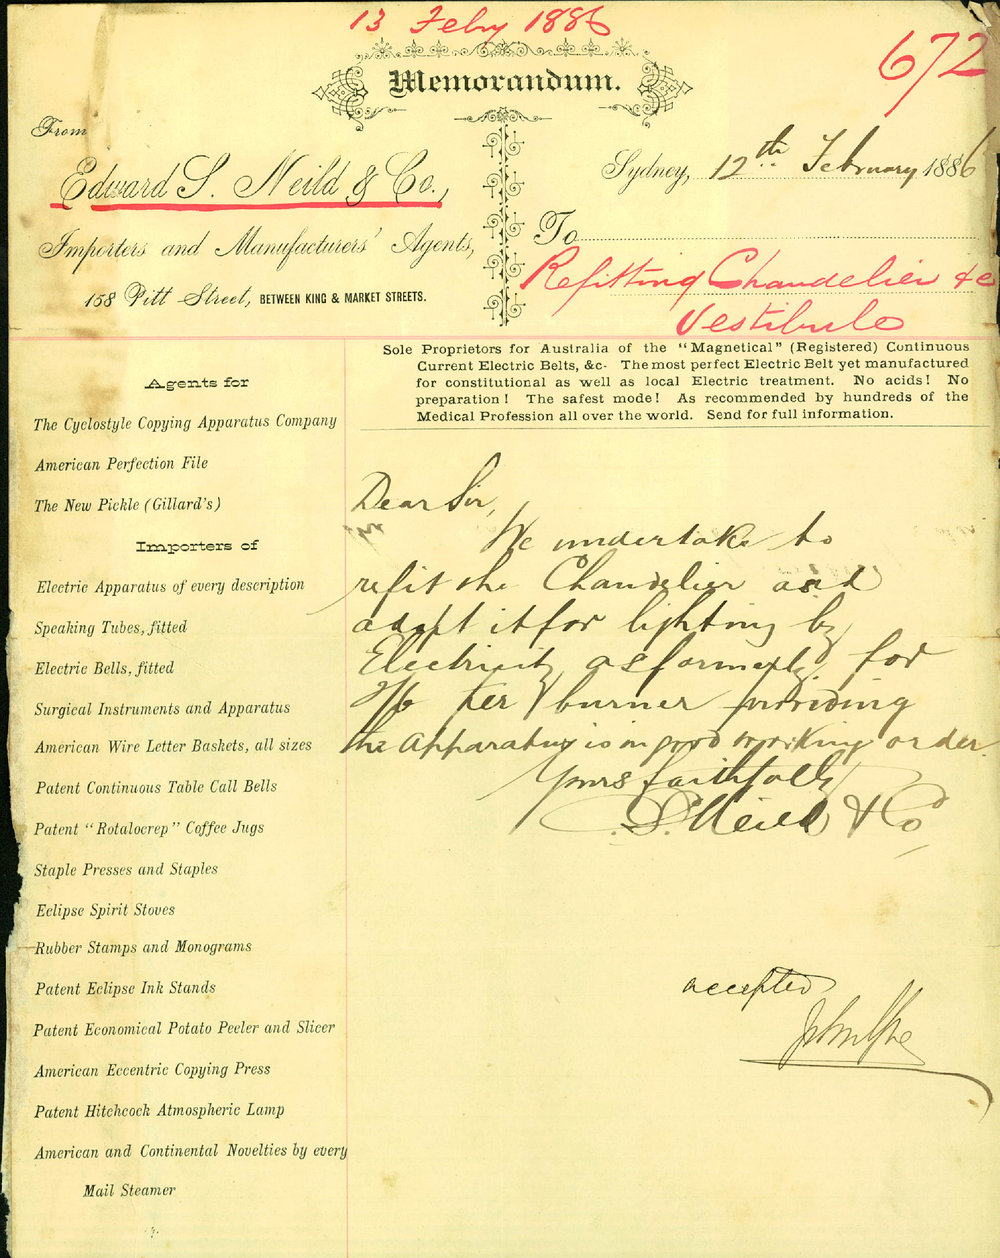 13 Feby 1886
672
Memorandum.
From
Edward S. Neild & Co.,
Importers and Manufacturers' Agents,
158 Pitt Street, BETWEEN KING & MARKET STREETS.
Sydney, 12th February 1886
To
Refitting Chandelier &c
Vestibule
Sole Proprietors for Australia of the "Magnetical" (Registered) Continuous
Current Electric Belts, &c- The most perfect Electric Belt yet manufactured
for constitutional as well as local Electric treatment. No acids! No
preparation! The safest mode! As recommended by hundreds of the
Medical Profession all over the world. Send for full information.
Agents for
The Cyclostyle Copying Apparatus Company
American Perfection File
The New Pickle (Gillard's)
Importers of
Electric Apparatus of every description
Speaking Tubes, fitted
Electric Bells, fitted
Surgical Instruments and Apparatus
American Wire Letter Baskets, all sizes
Patent Continuous Table Call Bells
Patent "Rotalocrep" Coffee Jugs
Staple Presses and Staples
Eclipse Spirit Stoves
Rubber Stamps and Monograms
Patent Eclipse Ink Stands
Patent Economical Potato Peeler and Slicer
American Eccentric Copying Press
Patent Hitchcock Atmospheric Lamp
American and Continental Novelties by every
Mail Steamer
Dear Sir,
We undertake to
refit the Chandelier and
adapt it for lighting by
Electricity as formerly, for
7/6 per burner providing
the apparatus is in good working order.
Yours faithfully
E. S. Neild & Co
accepted